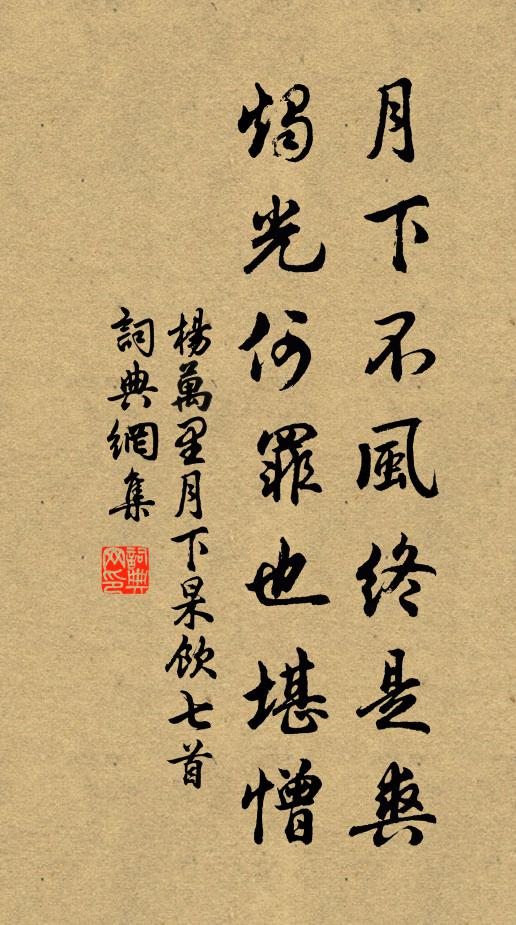 月下不風終是爽
燭光何罪也堪憎
楊萬里月下杲飲七首
詞典網集
詞典网印